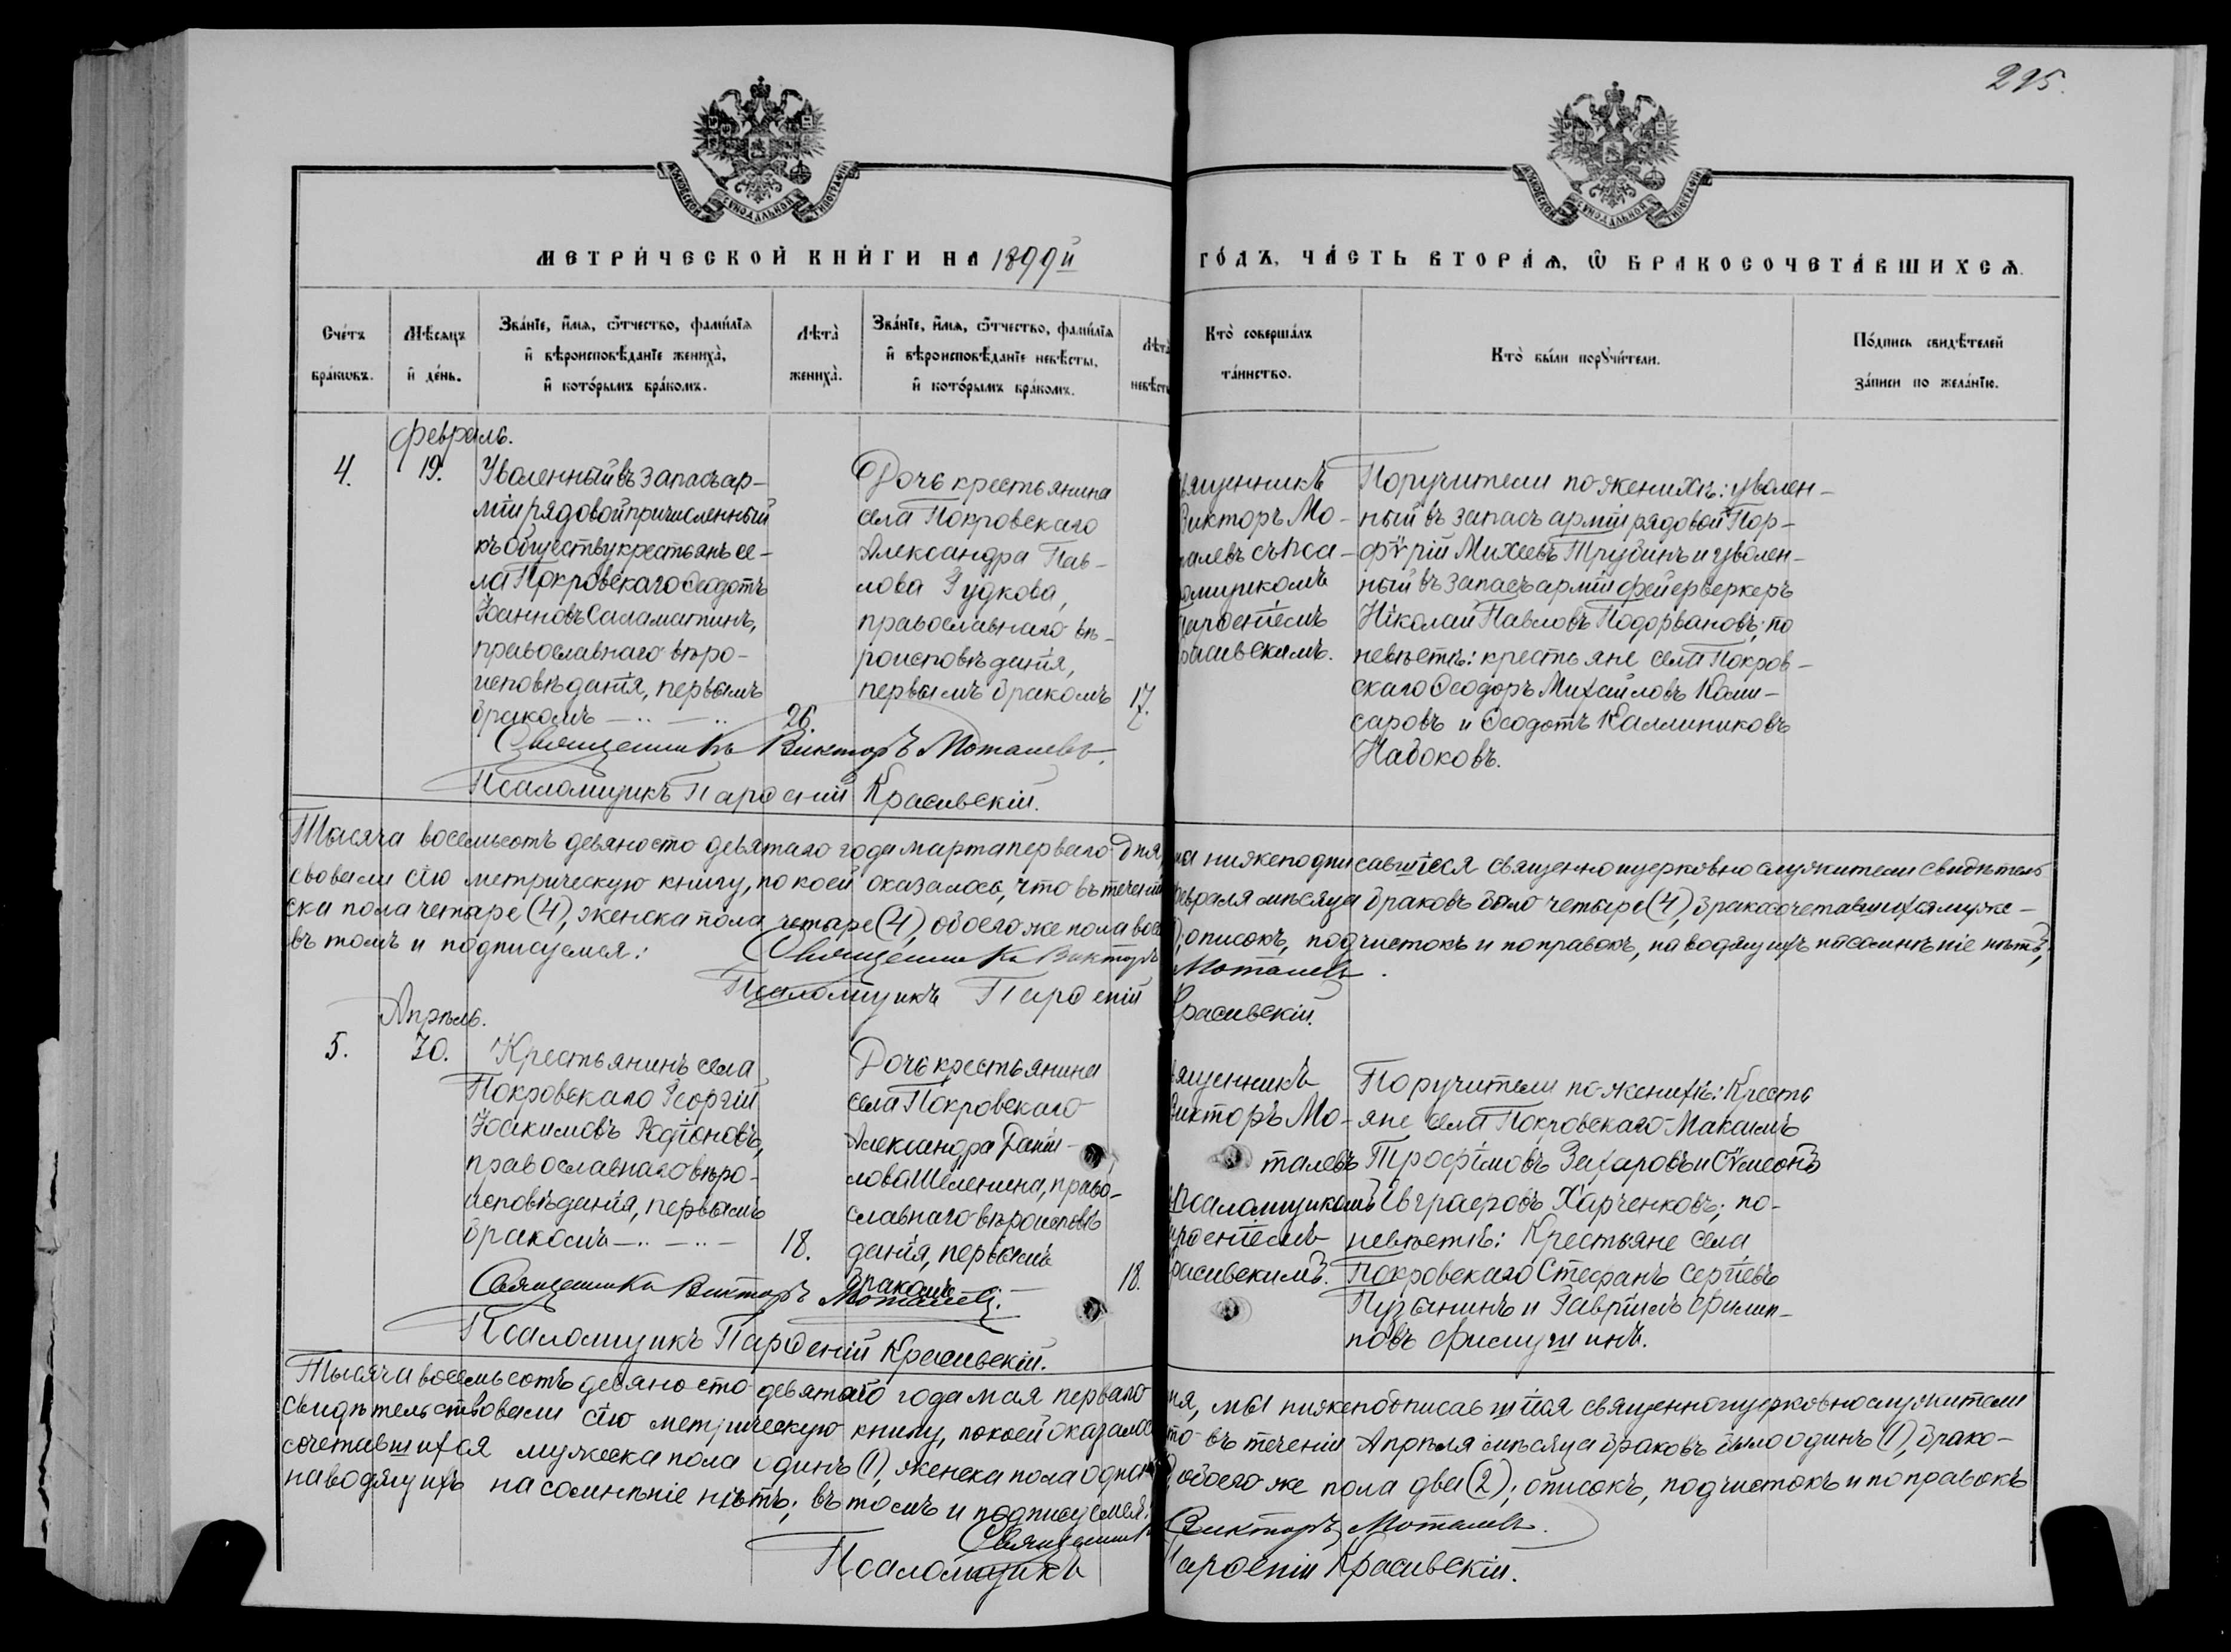 295.
МОСКОВСКОЙ СѴНОДАЛЬНОЙ ТИПОГРАФІИ
МОСКОВСКОЙ СѴНОДАЛЬНОЙ ТИПОГРАФІИ
МЕТРИ́ЧЕСКОЙ КНИ́ГИ НА 1899й
ГО́ДЪ, ЧА́СТЬ ВТОРА́Ѧ, Ѡ҆ БРАКОСОЧЕТА́ВШИХСѦ.
Сче́тъ
бра́кѡвъ.
Мѣ́сѧцъ
и҆ де́нь.
Зва́нїе, и҆́мѧ, ѻ҆́тчество, фамѝлїѧ
и҆ вѣроисповѣ́данїе жениха̀,
и҆ кото́рымъ бра́комъ.
Лѣта̀
жениха̀.
Зва́нїе, и҆́мѧ, ѻ҆́тчество, фамѝлїѧ
и҆ вѣроисповѣ́данїе невѣ́сты,
и҆ кото́рымъ бра́комъ.
Лѣта̀
невѣ́ст
Кто̀ соверша́лъ
та́инство.
Кто̀ бы́ли порꙋчи́тели.
По́дпись свидѣ́телей
за́писи по жела́нїю.
4.
Февраль.
19.
Уволенный въ запасъ ар-
міи рядовой причисленный
къ обществу крестьянъ се-
ла Покровскаго Ѳеодотъ
Іоанновъ Саламатинъ,
православнаго вѣро-
исповѣданія, первымъ
бракомъ
26.
Дочь крестьянина
села Покровскаго
Александра Пав-
лова Гудкова,
православнаго вѣ-
роисповѣданія,
первымъ бракомъ
17.
вященникъ
Викторъ Мо-
талевъ съ пса-
ломщикомъ
Парѳеніемъ
расивскимъ.
Поручители по женихѣ: уволен-
ный въ запасъ арміи рядовой Пор-
фѵрій Михеевъ Трубинъ и уволен-
ный въ запасъ арміи фейерверкеръ
Николай Павловъ Подорвановъ; по
невѣстѣ: крестьяне села Покров-
скаго Ѳеодоръ Михайловъ Коми-
саровъ и Ѳеодотъ Каллиниковъ
Набоковъ.
Священникъ Викторъ Моталевъ.
Псаломщикъ Парѳеній Красивскій.
Тысяча восемьсотъ девяносто девятаго года марта перваго дня, мы нижеподписавшіеся священноцерковнослужители свидѣтель
ствовали сію метрическую книгу, по коей оказалось, что въ теченіи февраля мѣсяца браковъ было четыре (4), бракосочетавшихся муже-
ска пола четыре (4), женска пола четыре (4), обоего же пола вос описокъ, подчистокъ и поправокъ, наводящихъ на сомнѣніе нѣтъ,
въ томъ и подписуемся: Священникъ Викторъ Моталевъ.
Псаломщикъ Парѳеній Красивскій.
5.
Апрѣль.
30.
Крестьянинъ села
Покровскаго Георгій
Іоакимовъ Родіоновъ,
православнаго вѣро-
исповѣданія, первымъ
бракомъ
18.
Дочь крестьянина
села Покровскаго
Александра Даніи-
лова Шеленина, право-
славнаго вѣроисповѣ
данія, первымъ
бракомъ
18.
вященникъ
Викторъ Мо-
талевъ
псаломщикомъ
арѳеніемъ
расивскимъ.
Поручители по женихѣ: Кресть
яне села Покровскаго Максимъ
Трофимовъ Захаровъ и Сѵмеонъ
Евграфовъ Харченковъ; по-
невѣстѣ: Крестьяне села
Покровскаго Стефанъ Сергіевъ
Пузанинъ и Гавріилъ Филип-
повъ Филушинъ.
Священникъ Викторъ Моталевъ.
Псаломщикъ Парѳеній Красивскій.
Тысяча восемьсотъ девяносто девятаго года мая перваго дня, мы нижеподписавшіися священноцерковнослужители
свидѣтельствовали сію метрическую книгу, по коей оказалось что въ теченіи Апрѣля мѣсяца браковъ было одинъ (1), брако-
сочетавшихся мужеска пола одинъ (1), женска пола одна обоего же пола два (2); описокъ, подчистокъ и поправокъ
наводящихъ на сомнѣніе нѣтъ; въ томъ и подписуемся:
Священникъ Викторъ Моталевъ.
Псаломщикъ Парѳеній Красивскій.